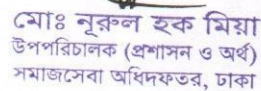 মোঃ নূরুল হক মিয়া
উপপরিচালক (প্রশাসন ও অর্থ)
সমাজসেবা অধিদফতর, ঢাকা